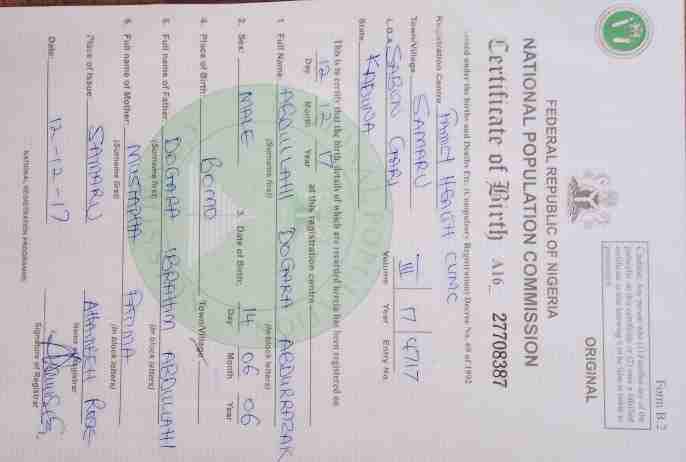 Form B.2
ORIGINAL
FEDERAL REPUBLIC OF NIGERIA
NATIONAL POPULATION COMMISSION
Certificate of Birth A16 27708387
under the births and Deaths Etc. (Compulsory Registration) Decree No. 69 of 1992
Registration Centre FAMILY HEALTH CLINIC
Town/Village SAMARU
L.G.A SABON GARI III 17 4717
State KADUNA Volume Year Entry No.
This is to certify that the birth, details of which are recorded herein has been registered on
12 12 17 at this registration centre
Day Month Year
1. Full Name ABDULLAHI DOGARA ABDURRAZAK
(Surname first) (In block letters)
2. Sex: MALE 3. Date of Birth: 14 06 06
Day Month Year
4. Place of Birth: BOMO Town/Village
5. Full name of Father: DOGARA IBRAHIM ABDULLAHI
(Surname first) (In block letters)
6. Full name of Mother: MUSTAPHA
(Surname first) (In block letters)
Place of Issue: SAMARU
Name of Registrar
Date: 12-12-17
Signature of Registrar
NATIONAL REGISTRATION PROGRAMME